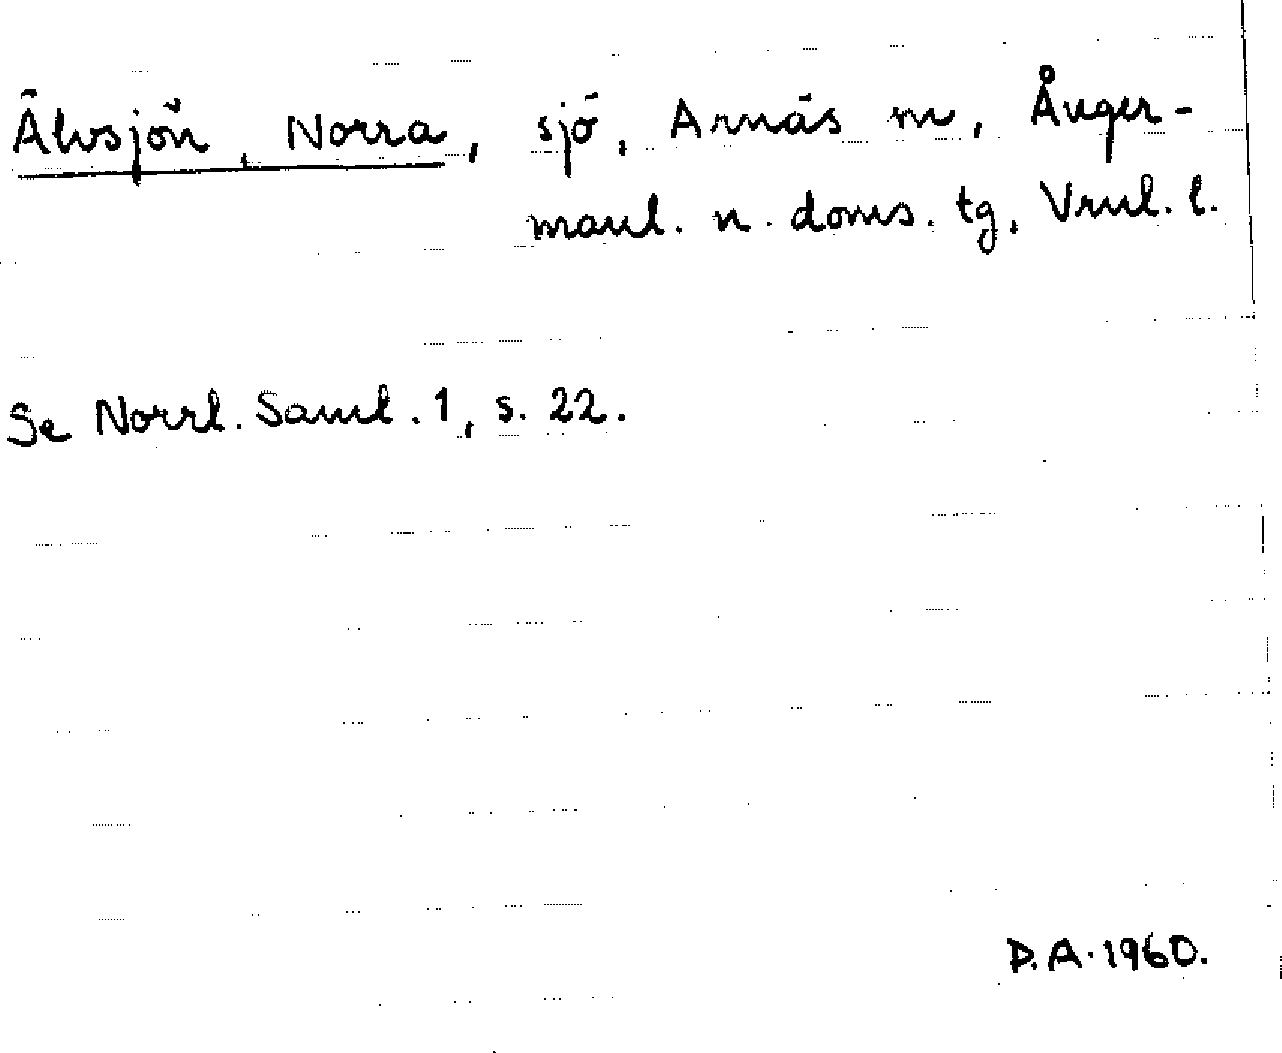 Älvsjön, Norra, sjö, Arnäs sn, Ånger-
manl. n. doms. tg, Vrnl. l.
Se Norrl. Saml. 1, s. 22.
D.A. 1960.